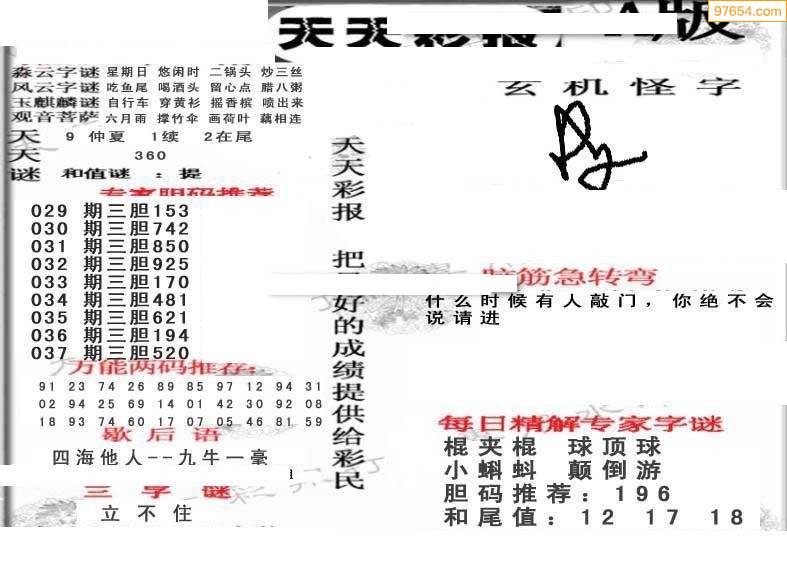 97654.com
天天彩报 A版
森云字谜 星期日 悠闲时 二锅头 炒三丝
风云字谜 吃鱼尾 喝酒头 留心点 腊八粥
玉麒麟谜 自行车 穿黄衫 摇香槟 喷出来
观音菩萨 六月雨 撑竹伞 画荷叶 藕相连
天 9 仲夏 1续 2在尾
天 360
谜 和值谜 ：提
专家胆码推荐
029 期三胆153
030 期三胆742
031 期三胆850
032 期三胆925
033 期三胆170
034 期三胆481
035 期三胆621
036 期三胆194
037 期三胆520
万能两码推荐:
91 23 74 26 89 85 97 12 94 31
02 94 25 69 14 01 42 30 92 08
18 93 74 60 17 07 05 46 81 59
歇后语
四海他人--九牛一毫
三字谜
立不住
天天彩报 把最好的成绩提供给彩民
玄机怪字
脑筋急转弯
什么时候有人敲门，你绝不会
说请进
每日精解专家字谜
棍夹棍 球顶球
小蝌蚪 颠倒游
胆码推荐：196
和尾值：12 17 18